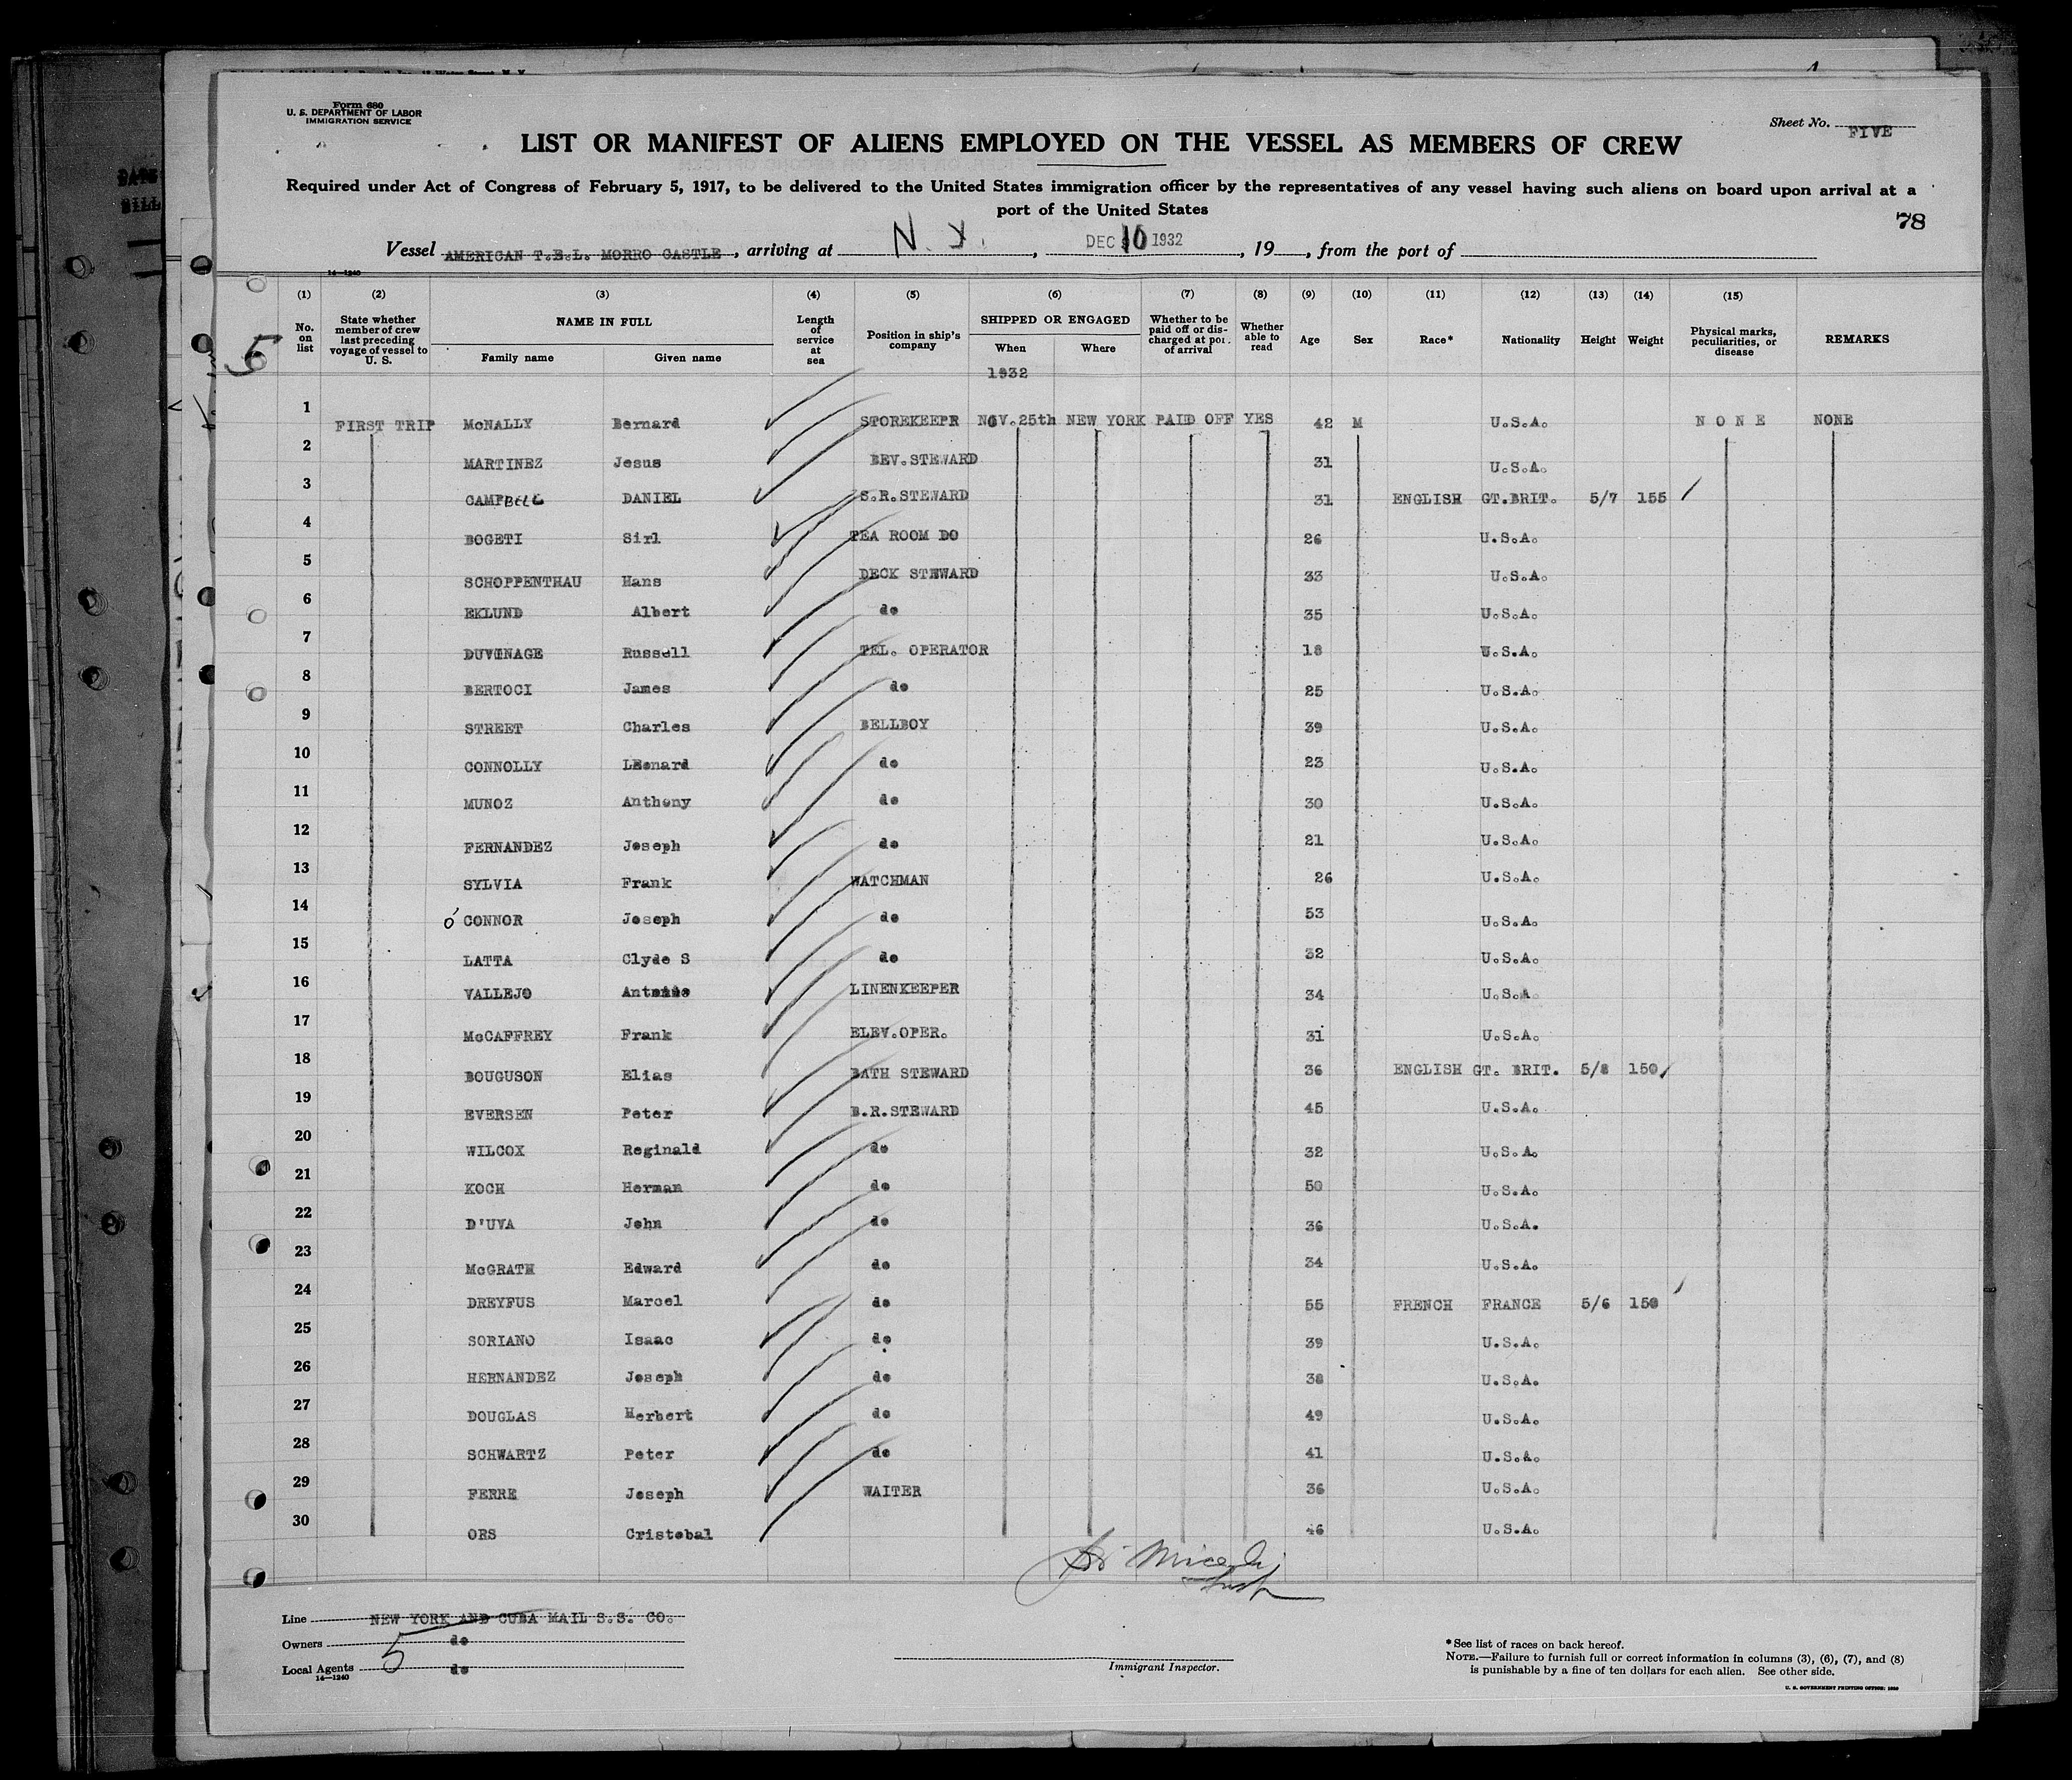 Form 680
U. S. DEPARTMENT OF LABOR
IMMIGRATION SERVICE
Sheet No. FIVE
LIST OR MANIFEST OF ALIENS EMPLOYED ON THE VESSEL AS MEMBERS OF CREW
Required under Act of Congress of February 5, 1917, to be delivered to the United States immigration officer by the representatives of any vessel having such aliens on board upon arrival at a
port of the United States
78
Vessel AMERICAN T.E.L. MORRO CASTLE, arriving at N. Y., DEC 10 1932, 19__, from the port of
14—1240
(1) (2) (3) (4) (5) (6) (7) (8) (9) (10) (11) (12) (13) (14) (15)
No. on list State whether member of crew last preceding voyage of vessel to U. S. NAME IN FULL Family name Given name Length of service at sea Position in ship's company SHIPPED OR ENGAGED When Where Whether to be paid off or discharged at port of arrival Whether able to read Age Sex Race* Nationality Height Weight Physical marks, peculiarities, or disease REMARKS
5
1932
1 FIRST TRIP McNALLY Bernard STOREKEEPR NOV.25th NEW YORK PAID OFF YES 42 M U.S.A. N O N E NONE
2 MARTINEZ Jesus BEV.STEWARD 31 U.S.A.
3 CAMPBELL DANIEL S.R.STEWARD 31 ENGLISH GT.BRIT. 5/7 155
4 BOGETI Sirl TEA ROOM DO 26 U.S.A.
5 SCHOPPENTHAU Hans DECK STEWARD 33 U.S.A.
6 EKLUND Albert do 35 U.S.A.
7 DUVINAGE Russell TEL. OPERATOR 18 U.S.A.
8 BERTOCI James do 25 U.S.A.
9 STREET Charles BELLBOY 39 U.S.A.
10 CONNOLLY LEonard do 23 U.S.A.
11 MUNOZ Anthony do 30 U.S.A.
12 FERNANDEZ Joseph do 21 U.S.A.
13 SYLVIA Frank WATCHMAN 26 U.S.A.
14 O'CONNOR Joseph do 53 U.S.A.
15 LATTA Clyde S do 32 U.S.A.
16 VALLEJO LINENKEEPER 34 U.S.A
17 McCAFFREY Frank ELEV.OPER. 31 U.S.A.
18 BOUGUSON Elias BATH STEWARD 36 ENGLISH GT. BRIT. 5/8 150
19 EVERSEN Peter B.R.STEWARD 45 U.S.A.
20 WILCOX Reginald do 32 U.S.A.
21 KOCH Herman do 50 U.S.A.
22 D'UVA John do 36 U.S.A.
23 McGRATH Edward do 34 U.S.A.
24 DREYFUS Marcel do 55 FRENCH FRANCE 5/6 150
25 SORIANO Isaac do 39 U.S.A.
26 HERNANDEZ Joseph do 38 U.S.A.
27 DOUGLAS Herbert do 49 U.S.A.
28 SCHWARTZ Peter do 41 U.S.A.
29 FERRE Joseph WAITER 36 U.S.A.
30 ORS Cristobal 46 U.S.A.
Line NEW YORK AND CUBA MAIL S.S. CO.
Owners do
Local Agents 5 do
14—1240
Immigrant Inspector.
*See list of races on back hereof.
NOTE.—Failure to furnish full or correct information in columns (3), (6), (7), and (8)
is punishable by a fine of ten dollars for each alien. See other side.
U. S. GOVERNMENT PRINTING OFFICE: 1930